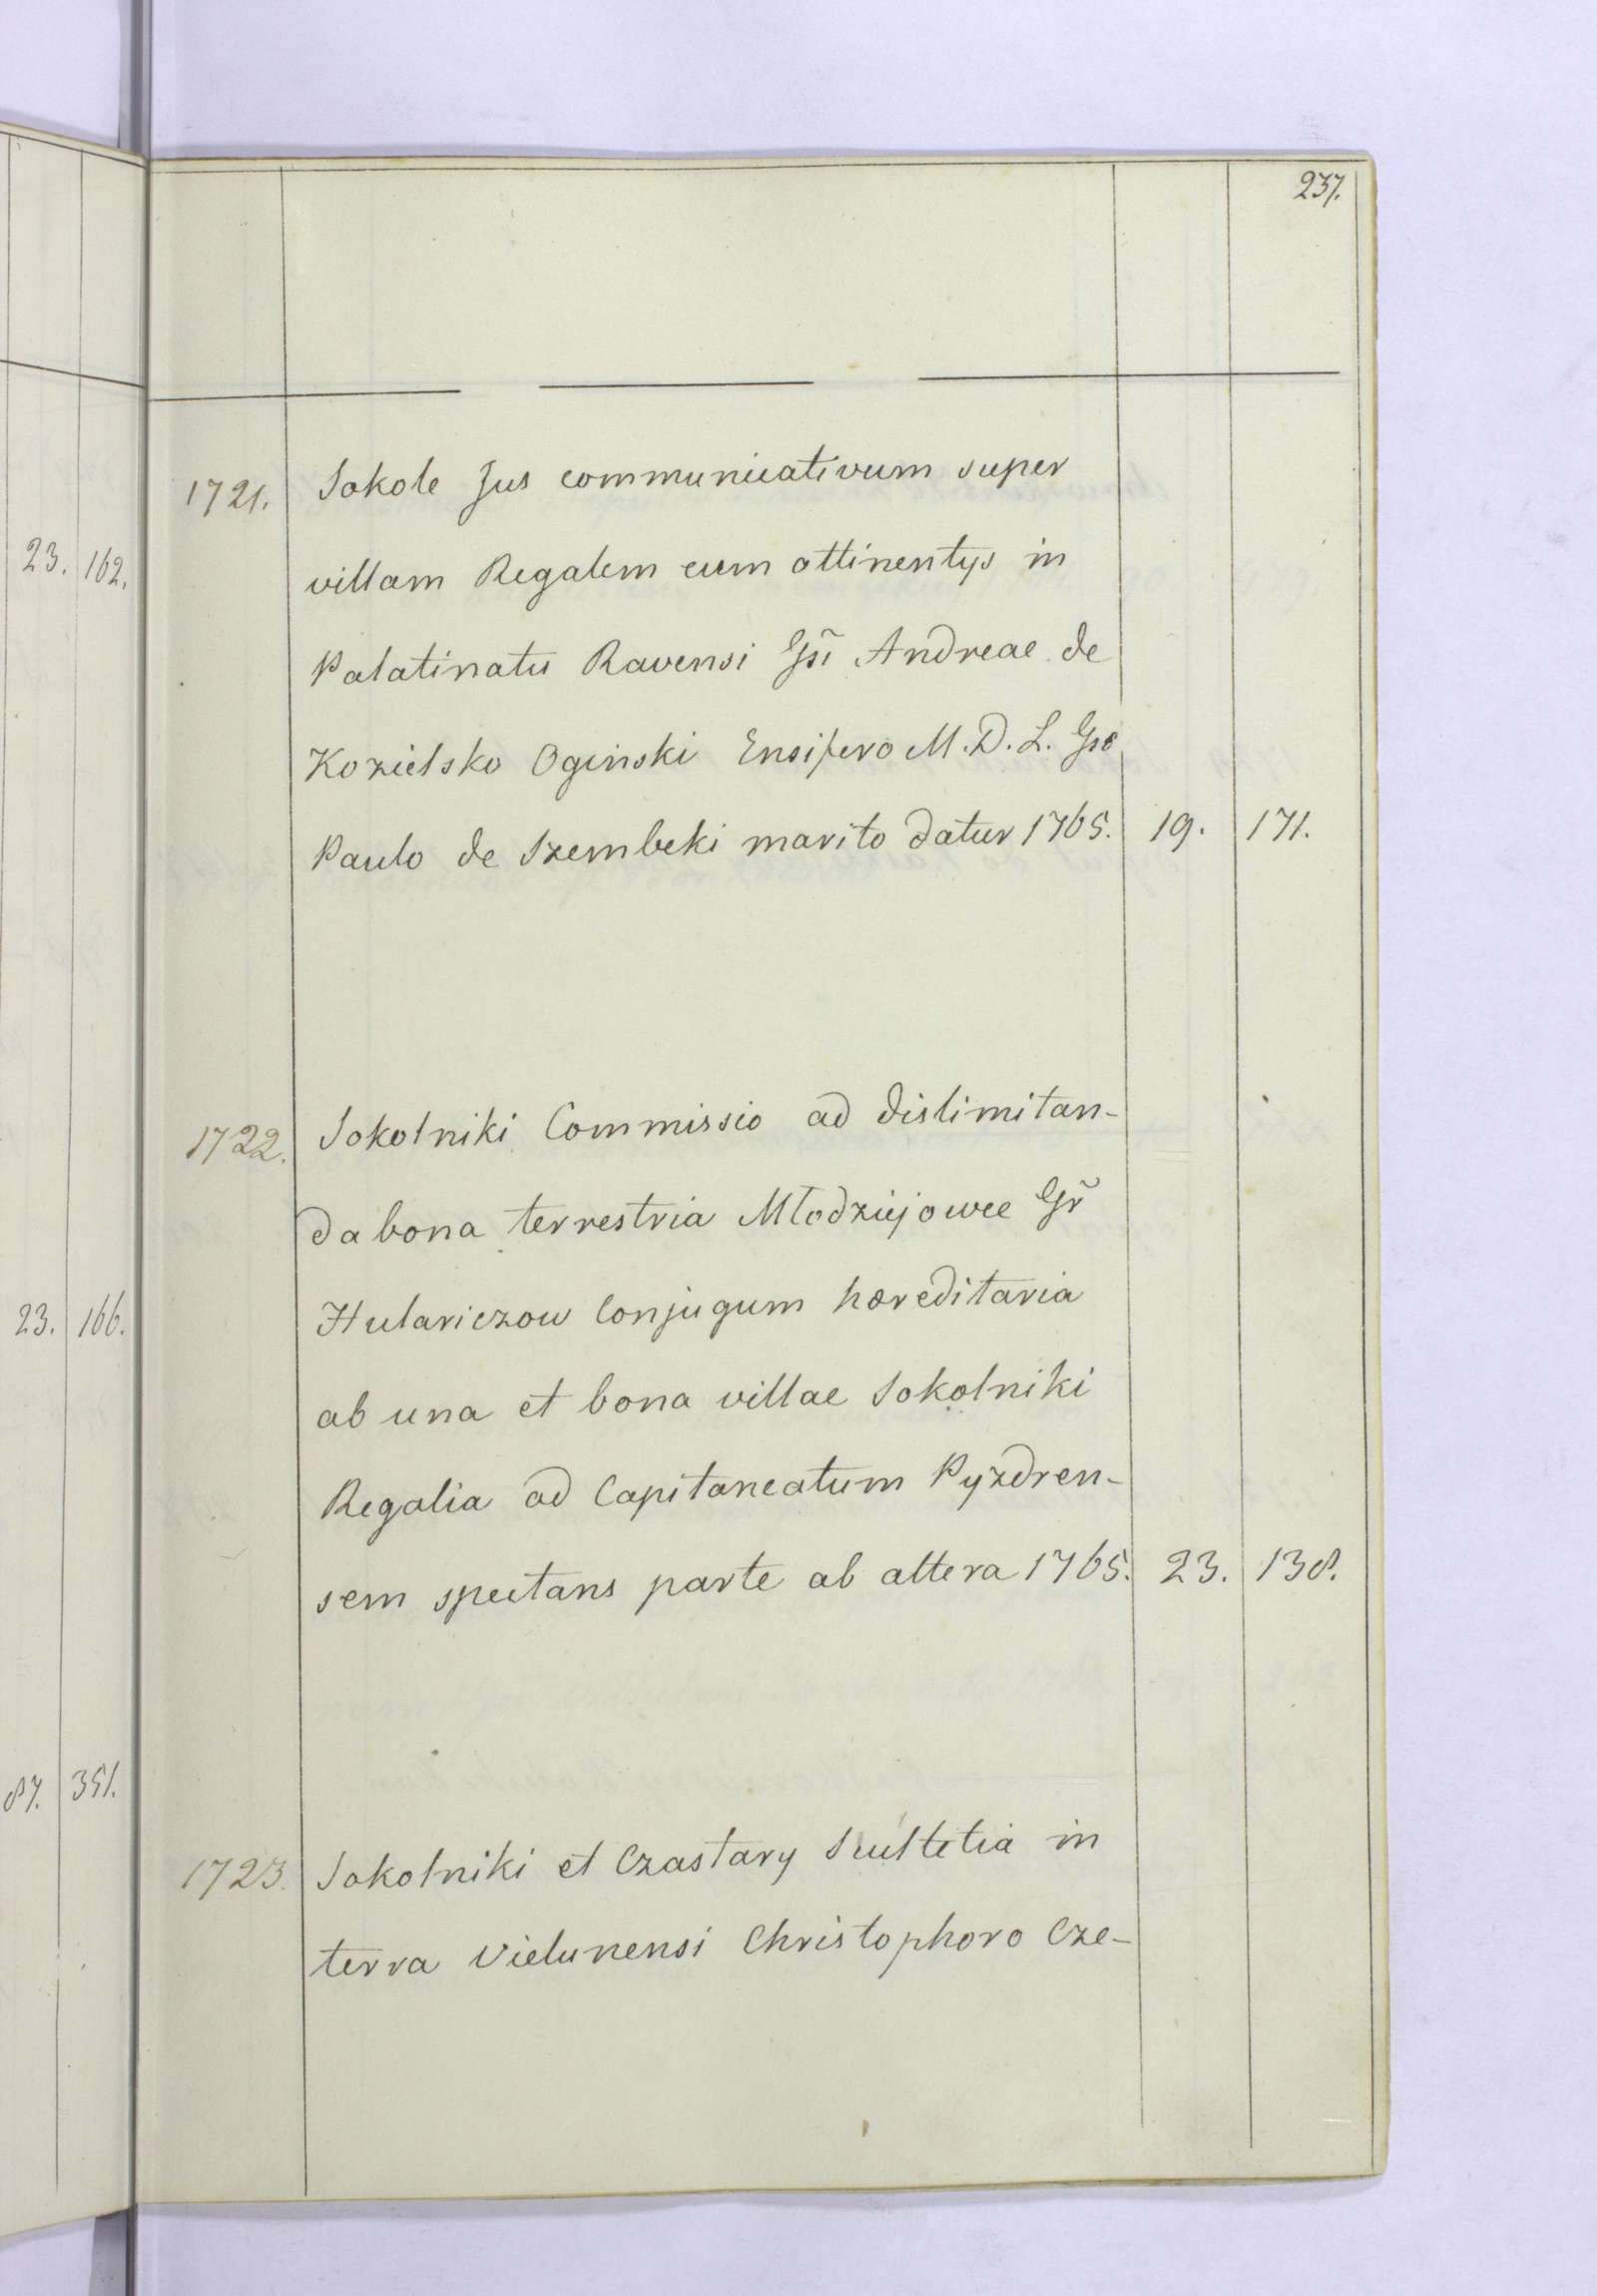 237.
23. 162.
23. 166.
87. 351.
1721. Sokole Jus communicativum super
villam Regalem cum attinentys in
Palatinatu Ravensi Gsi Andreae de
Kozielsko Oginski Ensifero M.D.L. Gso
Paulo de Szembeki marito datur 1765. 19. 171.
1722. Sokolniki Commissio ad dislimitan-
da bona terrestria Młodziejowce Gr̃
Hulariczow Conjugum haereditaria
ab una et bona villae Sokolniki
Regalia ad Capitaneatum Pyzdren-
sem spectans parte ab altera 1765. 23. 138.
1723. Sokolniki et Czastary Scultetia in
terra Vielunensi Christophoro Cze-